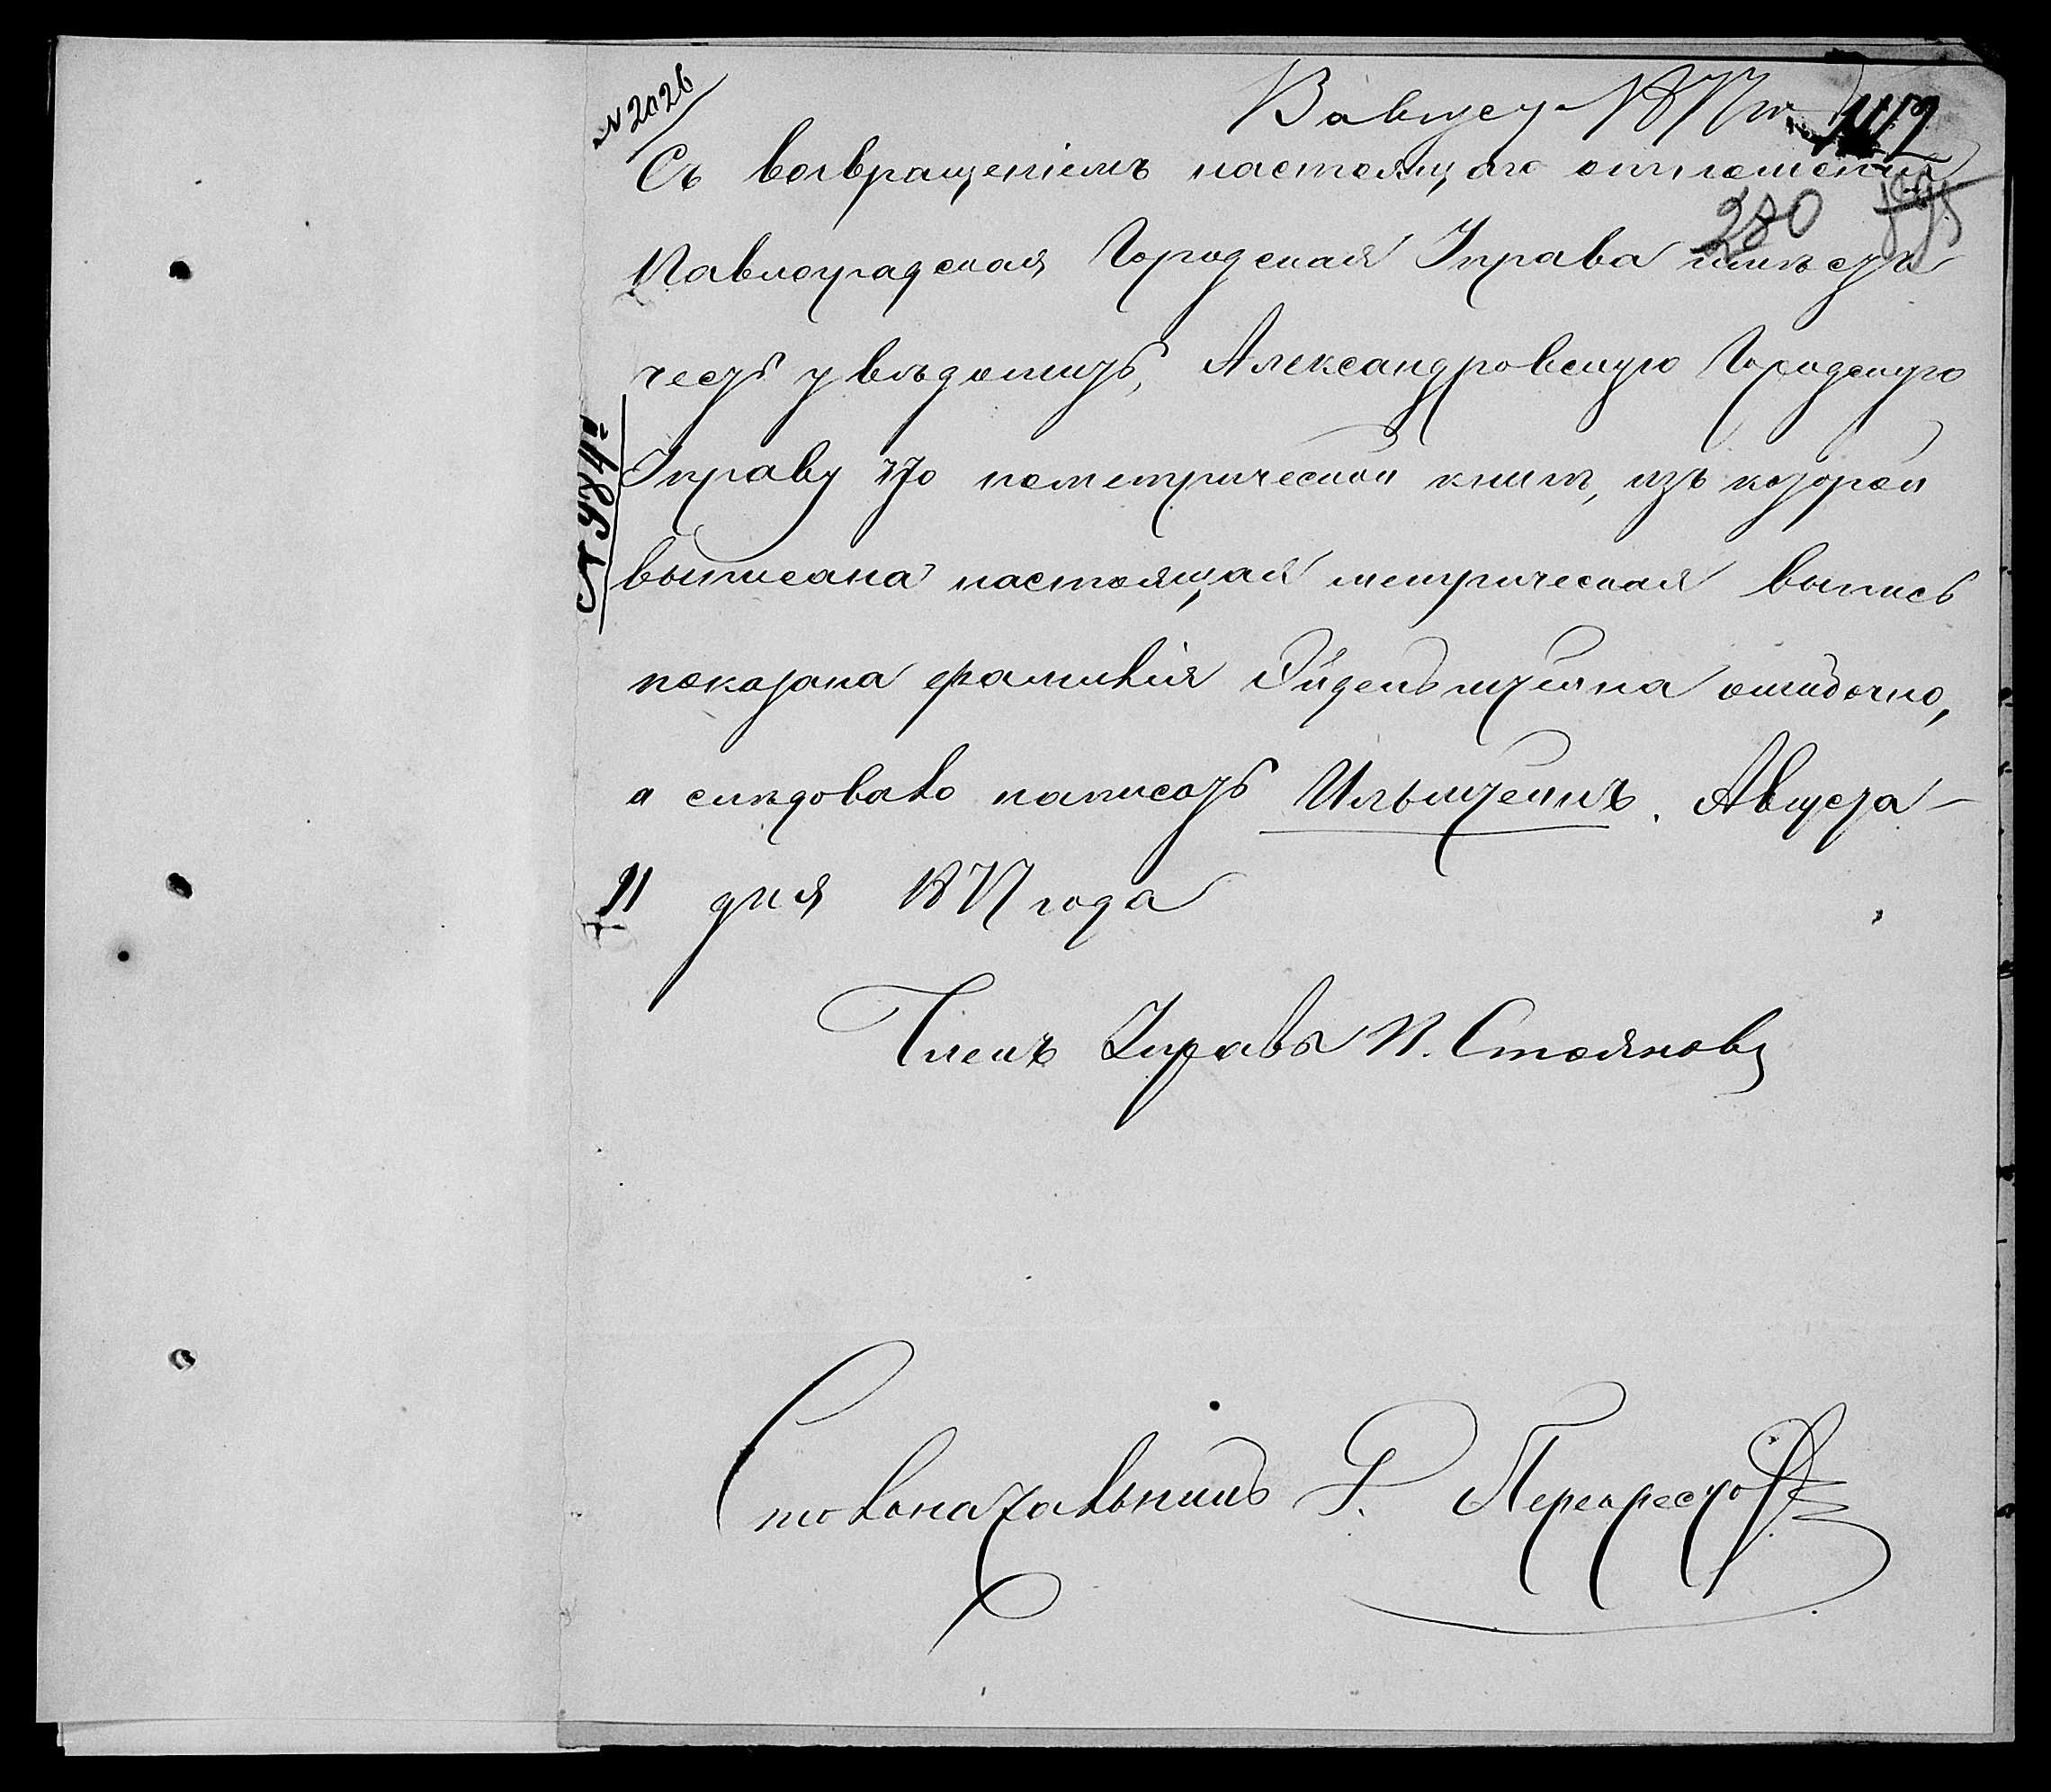 № 2026
Август 1877 г.
117
Съ возвращеніемъ настоящаго отношенія
280
Павлоградская Городская Управа имѣетъ
честь увѣдомить, Александровскую Городскую
№ 984
Управу что пометрической книгѣ, изъ которой
выписана настоящая метрическая выпись
показана фамилія ошибочно,
а слѣдовало написать . Августа
11 дня 1877 года
Членъ Управы П. Стояновъ
Столоначальникъ Перекрестовъ